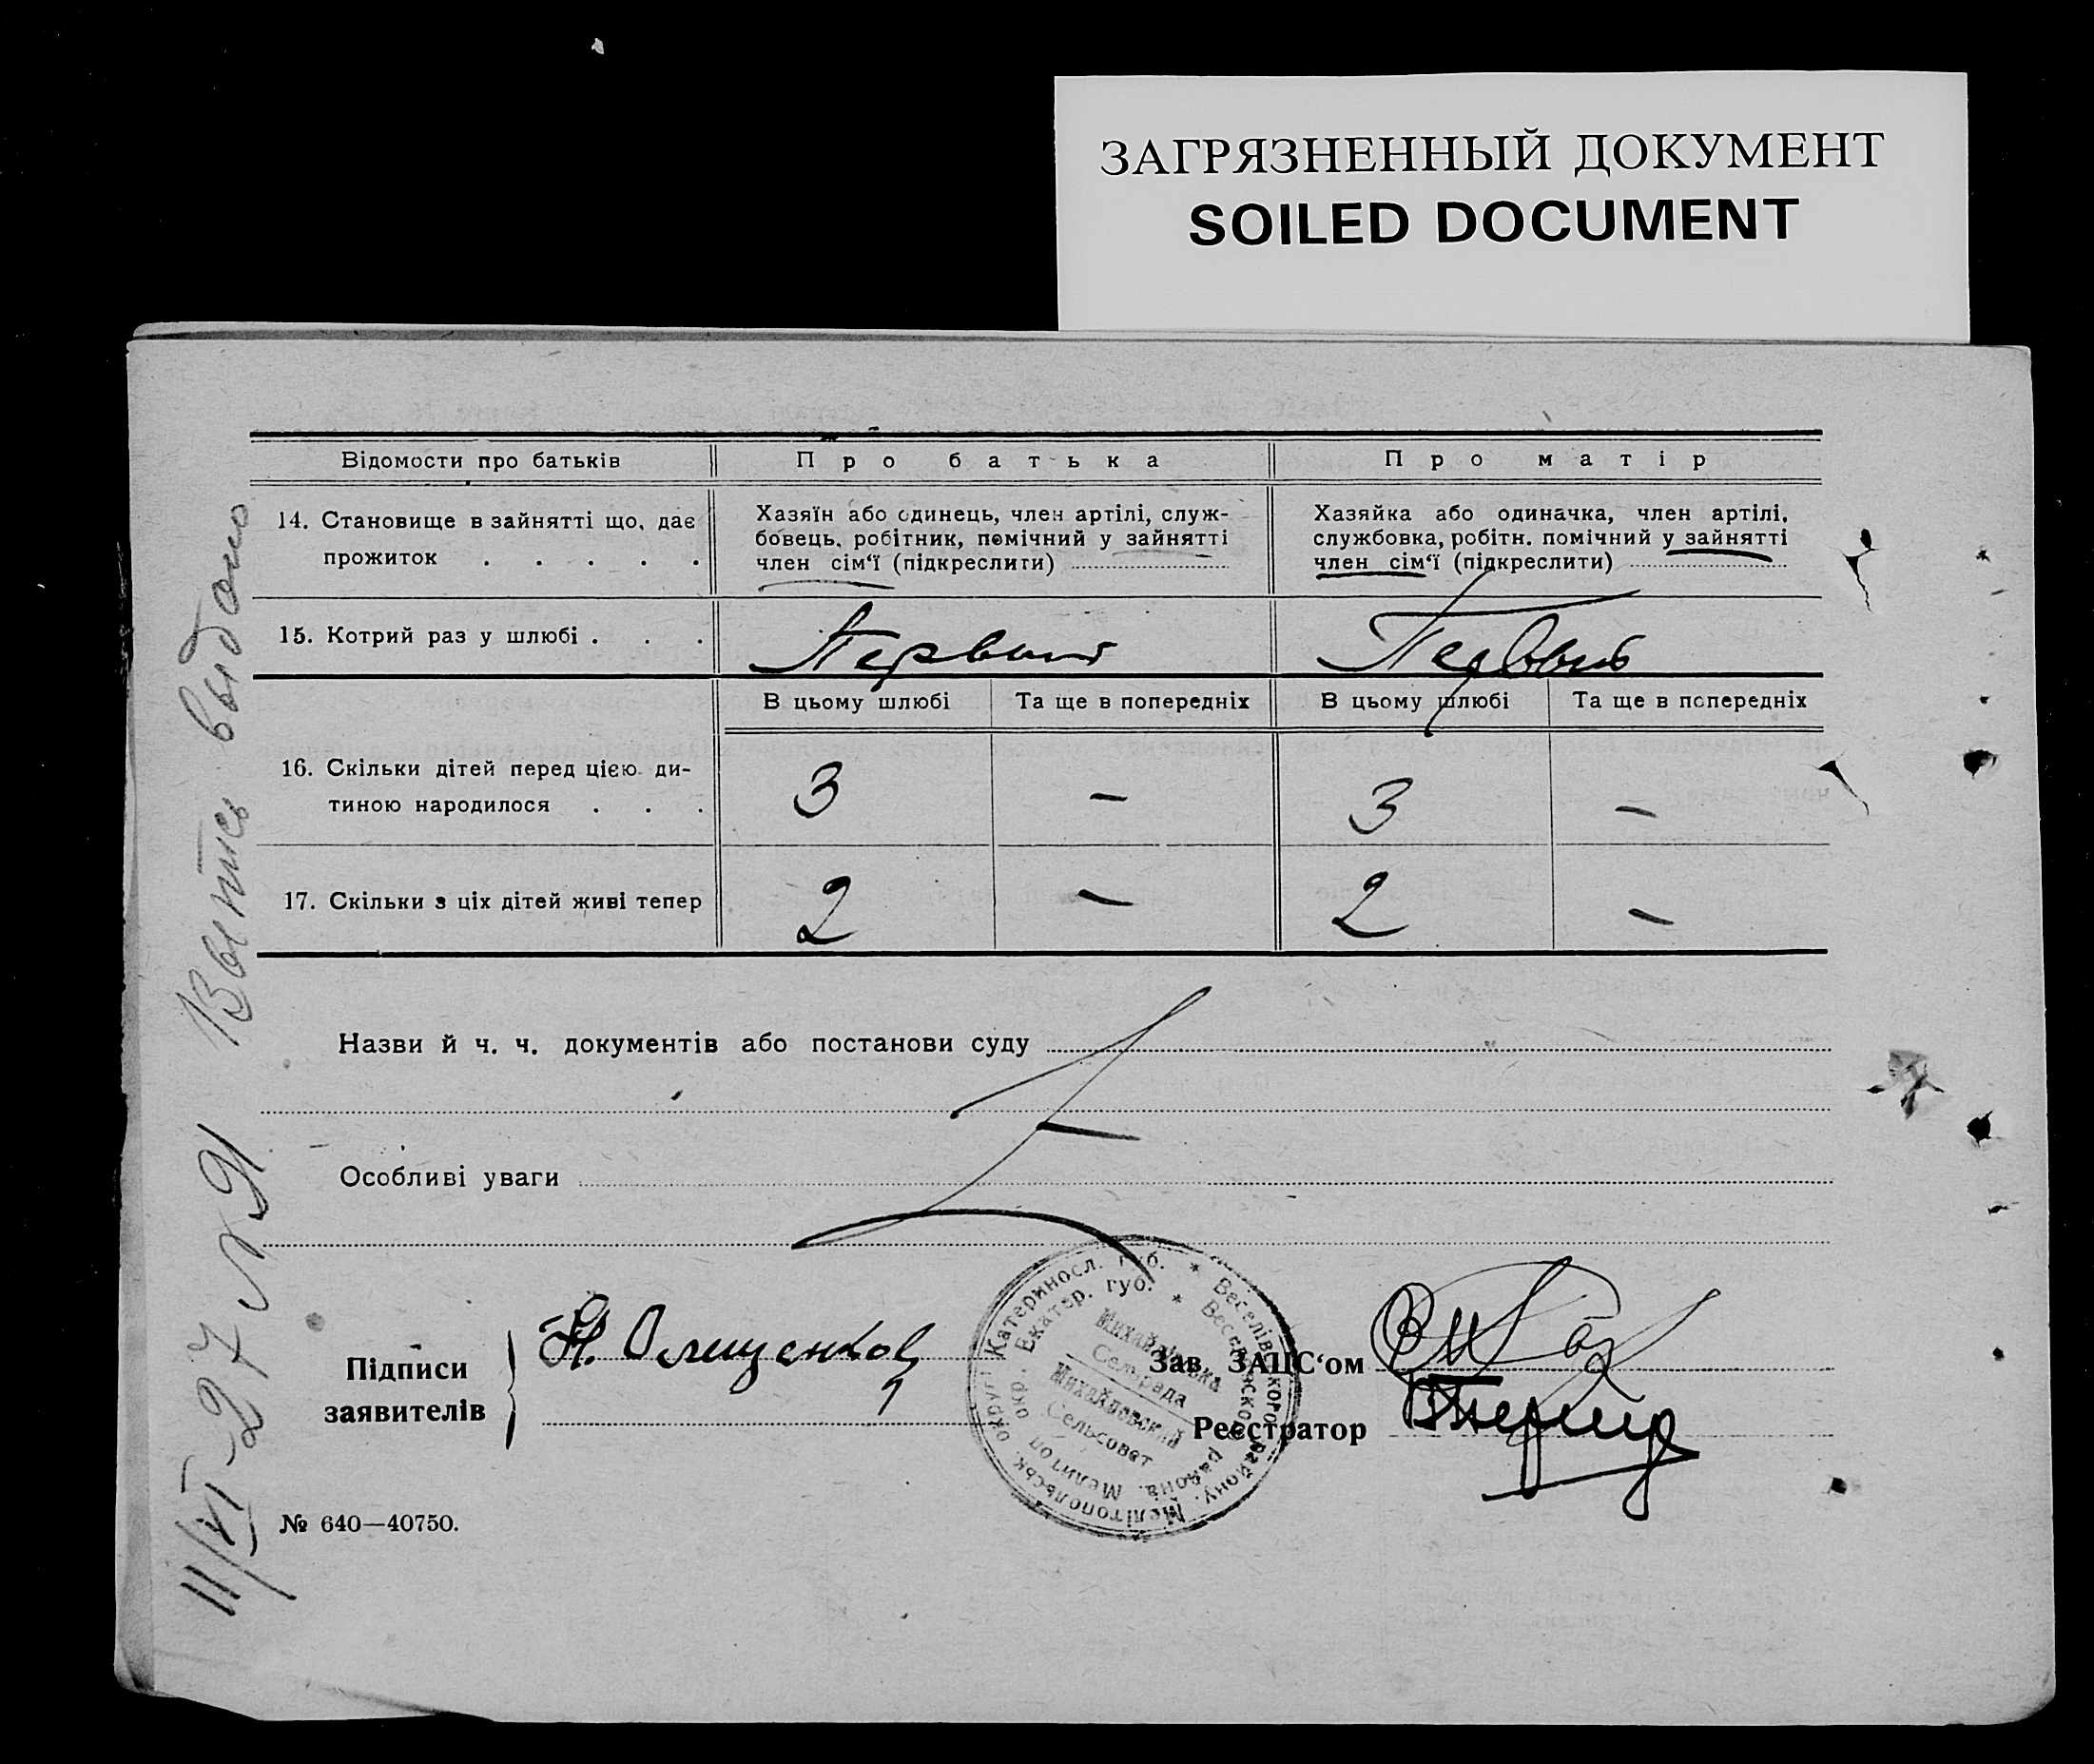 ЗАГРЯЗНЕННЫЙ ДОКУМЕНТ
SOILED DOCUMENT
Відомости про батьків
Про батька
Про матір
14. Становище в зайнятті що, дає
прожиток . . . . .
Хазяїн або одинець, член артілі, служ-
бовець, робітник, помічний у зайнятті
член сім‘ї (підкреслити)
Хазяйка або одиначка, член артілі,
службовка, робітн. помічний у зайнятті
член сім‘ї (підкреслити)
15. Котрий раз у шлюбі . . .
Первый
Первый
В цьому шлюбі
Та ще в попередніх
В цьому шлюбі
Та ще в попередніх
16. Скільки дітей перед цією ди-
тиною народилося . . .
3
–
3
–
17. Скільки з ціх дітей живі тепер
2
–
2
–
Назви й ч. ч. документів або постанови суду
Особливі уваги
Підписи
заявителів
Зав. ЗАПС‘ом
Реєстратор
Катериносл. губ. * Веселівського району, Мелітопольськ. округ
Екатер. губ. * Веселовского района, Мелитоп. окр.
Михайлівка
Сельрада
Михайловский
Сельсовет
№ 640—40750.
11/VI-27 № 91 Выпись выдано